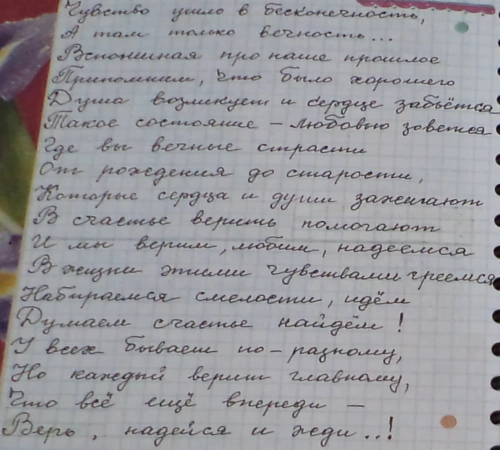 Чувство ушло в бесконечность,
А там только вечность...
Вспоминая про наше прошлое
Припомним, что было хорошего
Душа возликует и сердце забьётся
Такое состояние - любовью зовётся
Где вы вечные страсти
От рождения до старости,
Которые сердца и души зажигают
В счастье верить помогают
И мы верим, любим, надеемся
В жизни этими чувствами греемся
Набираемся смелости, идём
Думаем счастье найдём!
У всех бывает по-разному,
Но каждый верит главному,
Что всё ещё впереди -
Верь, надейся и жди..!